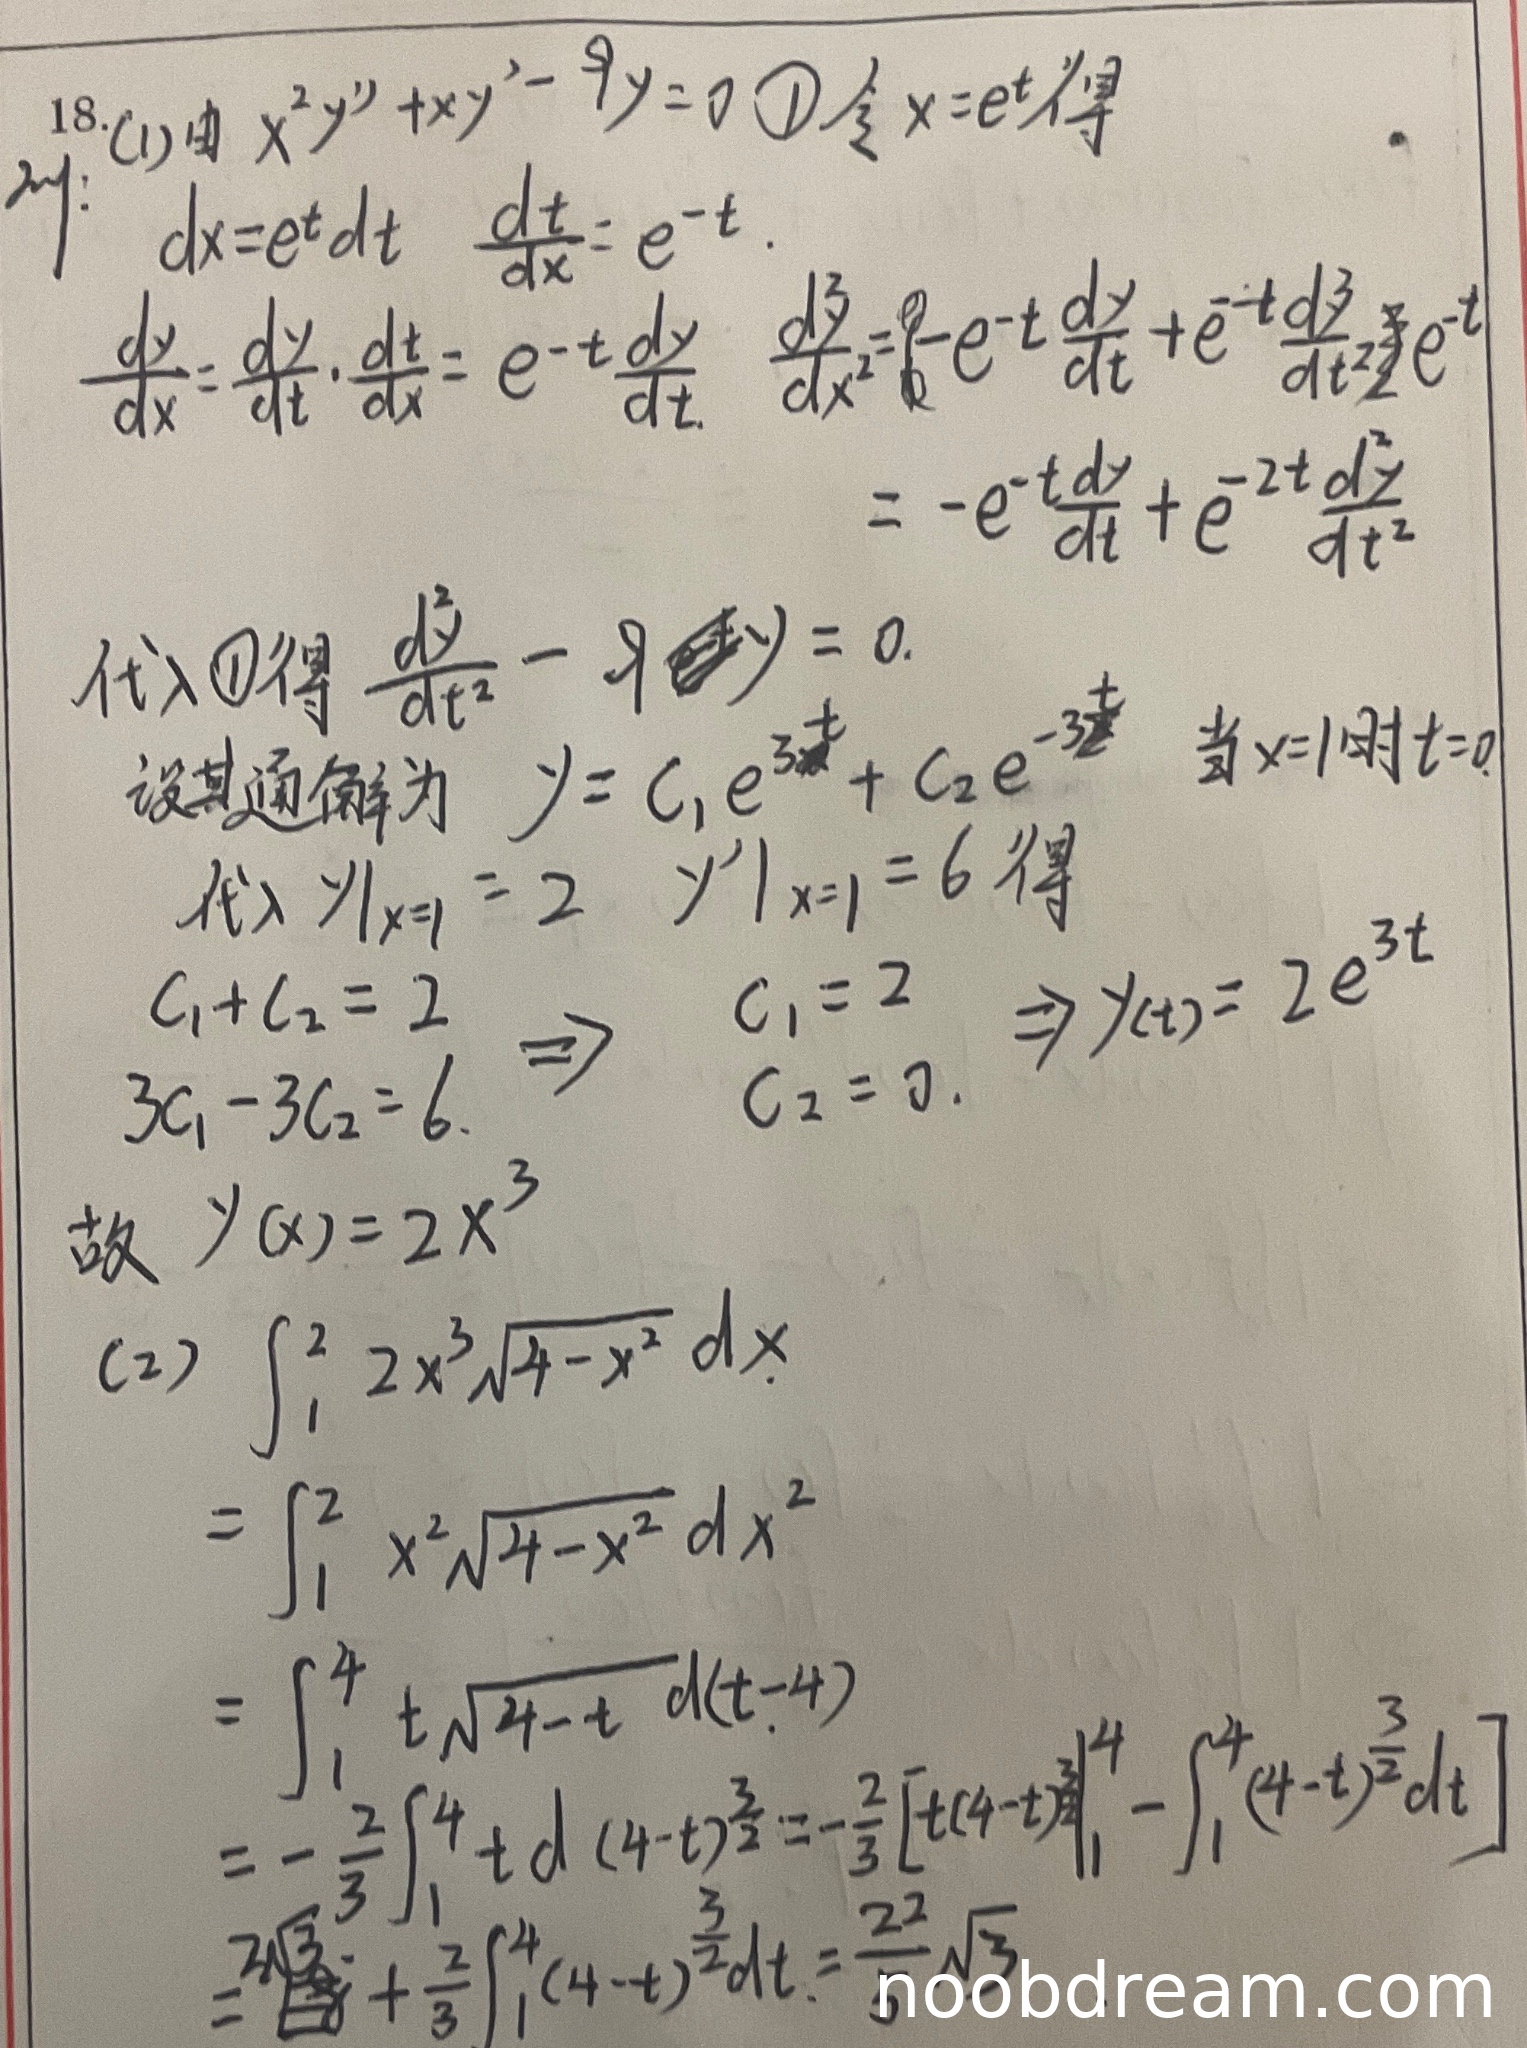 18.(1)由 x²y''+xy'-9y=0 ① 令 x=e^t 得
dx=e^t dt  dt/dx=e^{-t}.
dy/dx=dy/dt·dt/dx=e^{-t}dy/dt.  d²y/dx²=[-e^{-t}dy/dt+e^{-t}d²y/dt² e^{-t}
=-e^{-t}dy/dt+e^{-2t}d²y/dt²
代入①得 d²y/dt²-9y=0.
设其通解为 y=C₁e^{3t}+C₂e^{-3t} 当x=1时t=0.
代入 y|_{x=1}=2  y'|_{x=1}=6 得
C₁+C₂=2
3C₁-3C₂=6.
⇒ C₁=2
C₂=0.
⇒ y(t)=2e^{3t}
故 y(x)=2x³
(2) ∫₁² 2x³√(4-x²) dx.
=∫₁² x²√(4-x²) dx²
=∫₁⁴ t√(4-t) d(t-4)
=-2/3∫₁⁴ t d(4-t)^{3/2}=-2/3[t(4-t)^{3/2}|₁⁴-∫₁⁴(4-t)^{3/2}dt]
=2√3+2/3∫₁⁴(4-t)^{3/2}dt.=22/5√3
noobdream.com